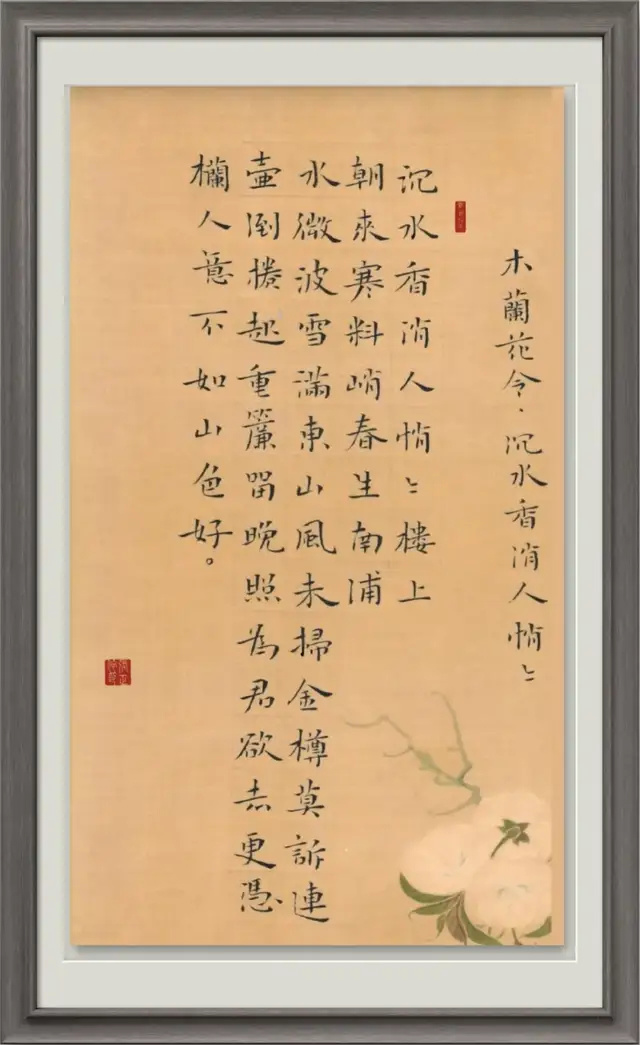 木蘭花令·沉水香消人悄〻
沉水香消人悄〻楼上
朝來寒料峭春生南浦
水微波雪滿東山風未掃金樽莫訴連
壷倒捲起重簾留晚照為君欲去更憑
欄人意不如山色好。